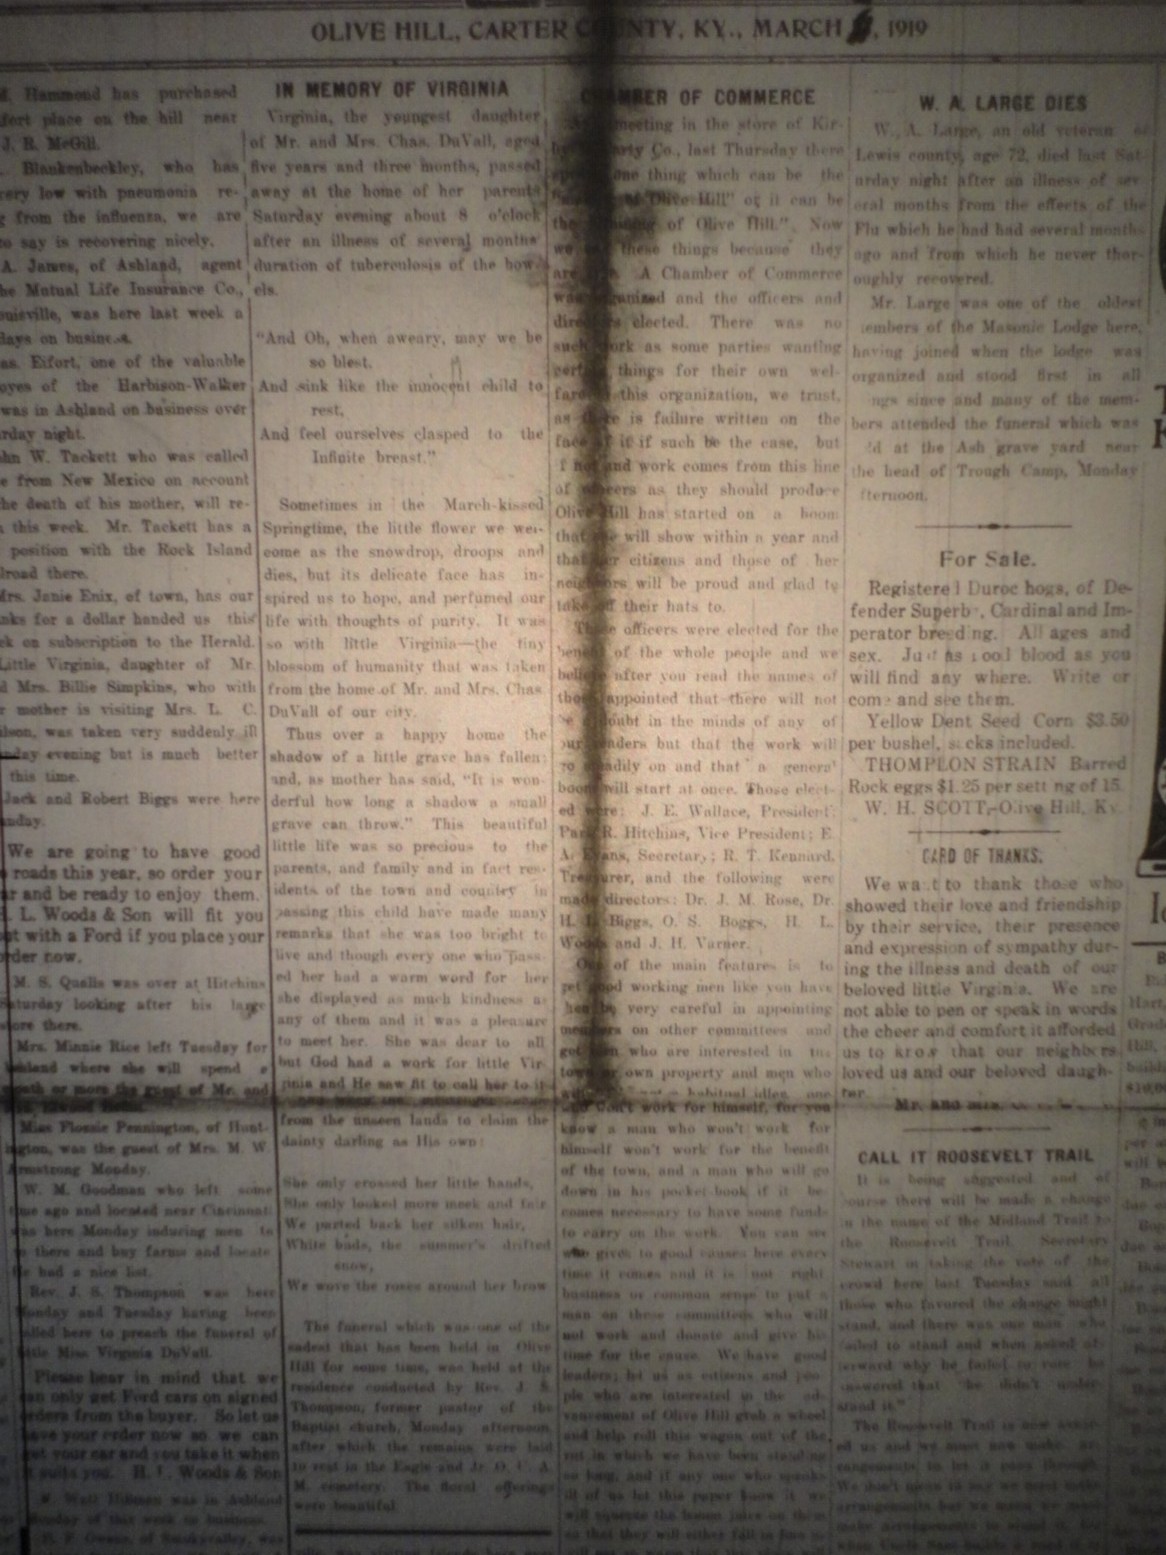 OLIVE HILL, CARTER COUNTY, KY., MARCH , 1919
Hammond has purchased
fort place on the hill near
J. B. McGill.
Blankenbeckley, who has
very low with pneumonia re-
from the influenza, we are
to say is recovering nicely.
A. James, of Ashland, agent
he Mutual Life Insurance Co.,
ouisville, was here last week a
days on business.
as. Eifort, one of the valuable
oyes of the Harbison-Walker
was in Ashland on business over
rday night.
hn W. Tackett who was called
e from New Mexico on account
he death of his mother, will re-
this week. Mr. Tackett has a
position with the Rock Island
lroad there.
Mrs. Janie Enix, of town, has our
nks for a dollar handed us this
ek on subscription to the Herald.
Little Virginia, daughter of Mr.
d Mrs. Billie Simpkins, who with
r mother is visiting Mrs. L. C.
ilson, was taken very suddenly ill
day evening but is much better
this time.
Jack and Robert Biggs were here
nday.
We are going to have good
roads this year, so order your
r and be ready to enjoy them.
L. Woods & Son will fit you
ut with a Ford if you place your
rder now.
M. S. Qualls was over at Hitchins
Saturday looking after his large
store there.
Mrs. Minnie Rice left Tuesday for
Ashland where she will spend a
month or more the guest of Mr. and
Miss Flossie Pennington, of Hunt-
ington, was the guest of Mrs. M. W.
Armstrong Monday.
W. M. Goodman who left some
time ago and located near Cincinnati
was here Monday inducing men to
there and buy farms and locate
He had a nice lot.
Rev. J. S. Thompson was here
Monday and Tuesday having been
called here to preach the funeral of
little Miss Virginia DuVall.
Please bear in mind that we
can only get Ford cars on signed
orders from the buyer. So let us
have your order now so we can
get your car and you take it when
it suits you. H. L. Woods & Son
was in Ashland
Monday of this week on business.
IN MEMORY OF VIRGINIA
Virginia, the youngest daughter
of Mr. and Mrs. Chas. DuVall, aged
five years and three months, passed
away at the home of her parents
Saturday evening about 8 o'clock
after an illness of several months
duration of tuberculosis of the bow-
els.
"And Oh, when aweary, may we be
so blest,
And sink like the innocent child to
rest,
And feel ourselves clasped to the
Infinite breast."
Sometimes in the March-kissed
Springtime, the little flower we wel-
come as the snowdrop, droops and
dies, but its delicate face has in-
spired us to hope, and perfumed our
life with thoughts of purity. It was
so with little Virginia—the tiny
blossom of humanity that was taken
from the home of Mr. and Mrs. Chas.
DuVall of our city.
Thus over a happy home the
shadow of a little grave has fallen;
and, as mother has said, "It is won-
derful how long a shadow a small
grave can throw." This beautiful
little life was so precious to the
parents, and family and in fact res-
idents of the town and country in
passing this child have made many
remarks that she was too bright to
live and though every one who pass-
ed her had a warm word for her
she displayed as much kindness as
any of them and it was a pleasure
to meet her. She was dear to all
but God had a work for little Vir-
ginia and He saw fit to call her to it
from the unseen lands to claim the
dainty darling as His own:
She only crossed her little hands,
She only looked more meek and fair
We parted back her silken hair,
White buds, the summer's drifted
snow,
We wove the roses around her brow
The funeral which was one of the
saddest that has been held in Olive
Hill for some time, was held at the
residence conducted by Rev. J. S.
Thompson, former pastor of the
Baptist church, Monday afternoon
after which the remains were laid
to rest in the Eagle and Jr. O. U. A.
M. cemetery. The floral offerings
were beautiful.
CHAMBER OF COMMERCE
meeting in the store of Kir-
Co., last Thursday there
one thing which can be the
of Olive Hill" or it can be
the of Olive Hill." Now
we these things because they
are A Chamber of Commerce
was organized and the officers and
directors elected. There was no
such work as some parties wanting
certain things for their own wel-
fare this organization, we trust,
as there is failure written on the
face of it if such be the case, but
if not and work comes from this line
of officers as they should produce
Olive Hill has started on a boom
that she will show within a year and
that her citizens and those of her
neighbors will be proud and glad to
take off their hats to.
These officers were elected for the
benefit of the whole people and we
believe after you read the names of
those appointed that there will not
be a doubt in the minds of any of
our readers but that the work will
go steadily on and that a general
boom will start at once. Those elect-
ed were: J. E. Wallace, President;
Park R. Hitchins, Vice President; E.
A. Evans, Secretary; R. T. Kennard,
Treasurer, and the following were
made directors: Dr. J. M. Rose, Dr.
H. Biggs, O. S. Boggs, H. L.
Woods and J. H. Varner.
One of the main features is to
get good working men like you have
be very careful in appointing
members on other committees and
get men who are interested in the
town or own property and men who
a habitual idler, one
who won't work for himself, for you
know a man who won't work for
himself won't work for the benefit
of the town, and a man who will go
down in his pocket-book if it be-
comes necessary to have some funds
to carry on the work. You can see
who gives to good causes here every
time it comes and it is not right
business or common sense to put a
man on these committees who will
not work and donate and give his
time for the cause. We have good
leaders; let us as citizens and peo-
ple who are interested in the ad-
vancement of Olive Hill grab a wheel
and help roll this wagon out of the
rut in which we have been standing
so long, and if any one who speaks
ill of us let this paper know it we
will squeeze the lemon juice on them
so that they will either fall in line or
W. A. LARGE DIES
W. A. Large, an old veteran of
Lewis county, age 72, died last Sat-
urday night after an illness of sev-
eral months from the effects of the
Flu which he had had several months
ago and from which he never thor-
oughly recovered.
Mr. Large was one of the oldest
members of the Masonic Lodge here,
having joined when the lodge was
organized and stood first in all
ings since and many of the mem-
bers attended the funeral which was
held at the Ash grave yard near
the head of Trough Camp, Monday
afternoon.
For Sale.
Registered Duroc hogs, of De-
fender Superba, Cardinal and Im-
perator breeding. All ages and
sex. Just as good blood as you
will find any where. Write or
come and see them.
Yellow Dent Seed Corn $3.50
per bushel, sacks included.
THOMPLON STRAIN Barred
Rock eggs $1.25 per setting of 15.
W. H. SCOTT, Olive Hill, Ky.
CARD OF THANKS.
We want to thank those who
showed their love and friendship
by their service, their presence
and expression of sympathy dur-
ing the illness and death of our
beloved little Virginia. We are
not able to pen or speak in words
the cheer and comfort it afforded
us to know that our neighbors
loved us and our beloved daugh-
ter.
Mr. and Mrs.
CALL IT ROOSEVELT TRAIL
It is being suggested and of
course there will be made a change
in the name of the Midland Trail to
the Roosevelt Trail. Secretary
Stewart in taking the vote of the
crowd here last Tuesday said all
those who favored the change might
stand, and there was one man who
failed to stand and when asked af-
terward why he failed to vote he
answered that "he didn't under-
stand it."
The Roosevelt Trail is now